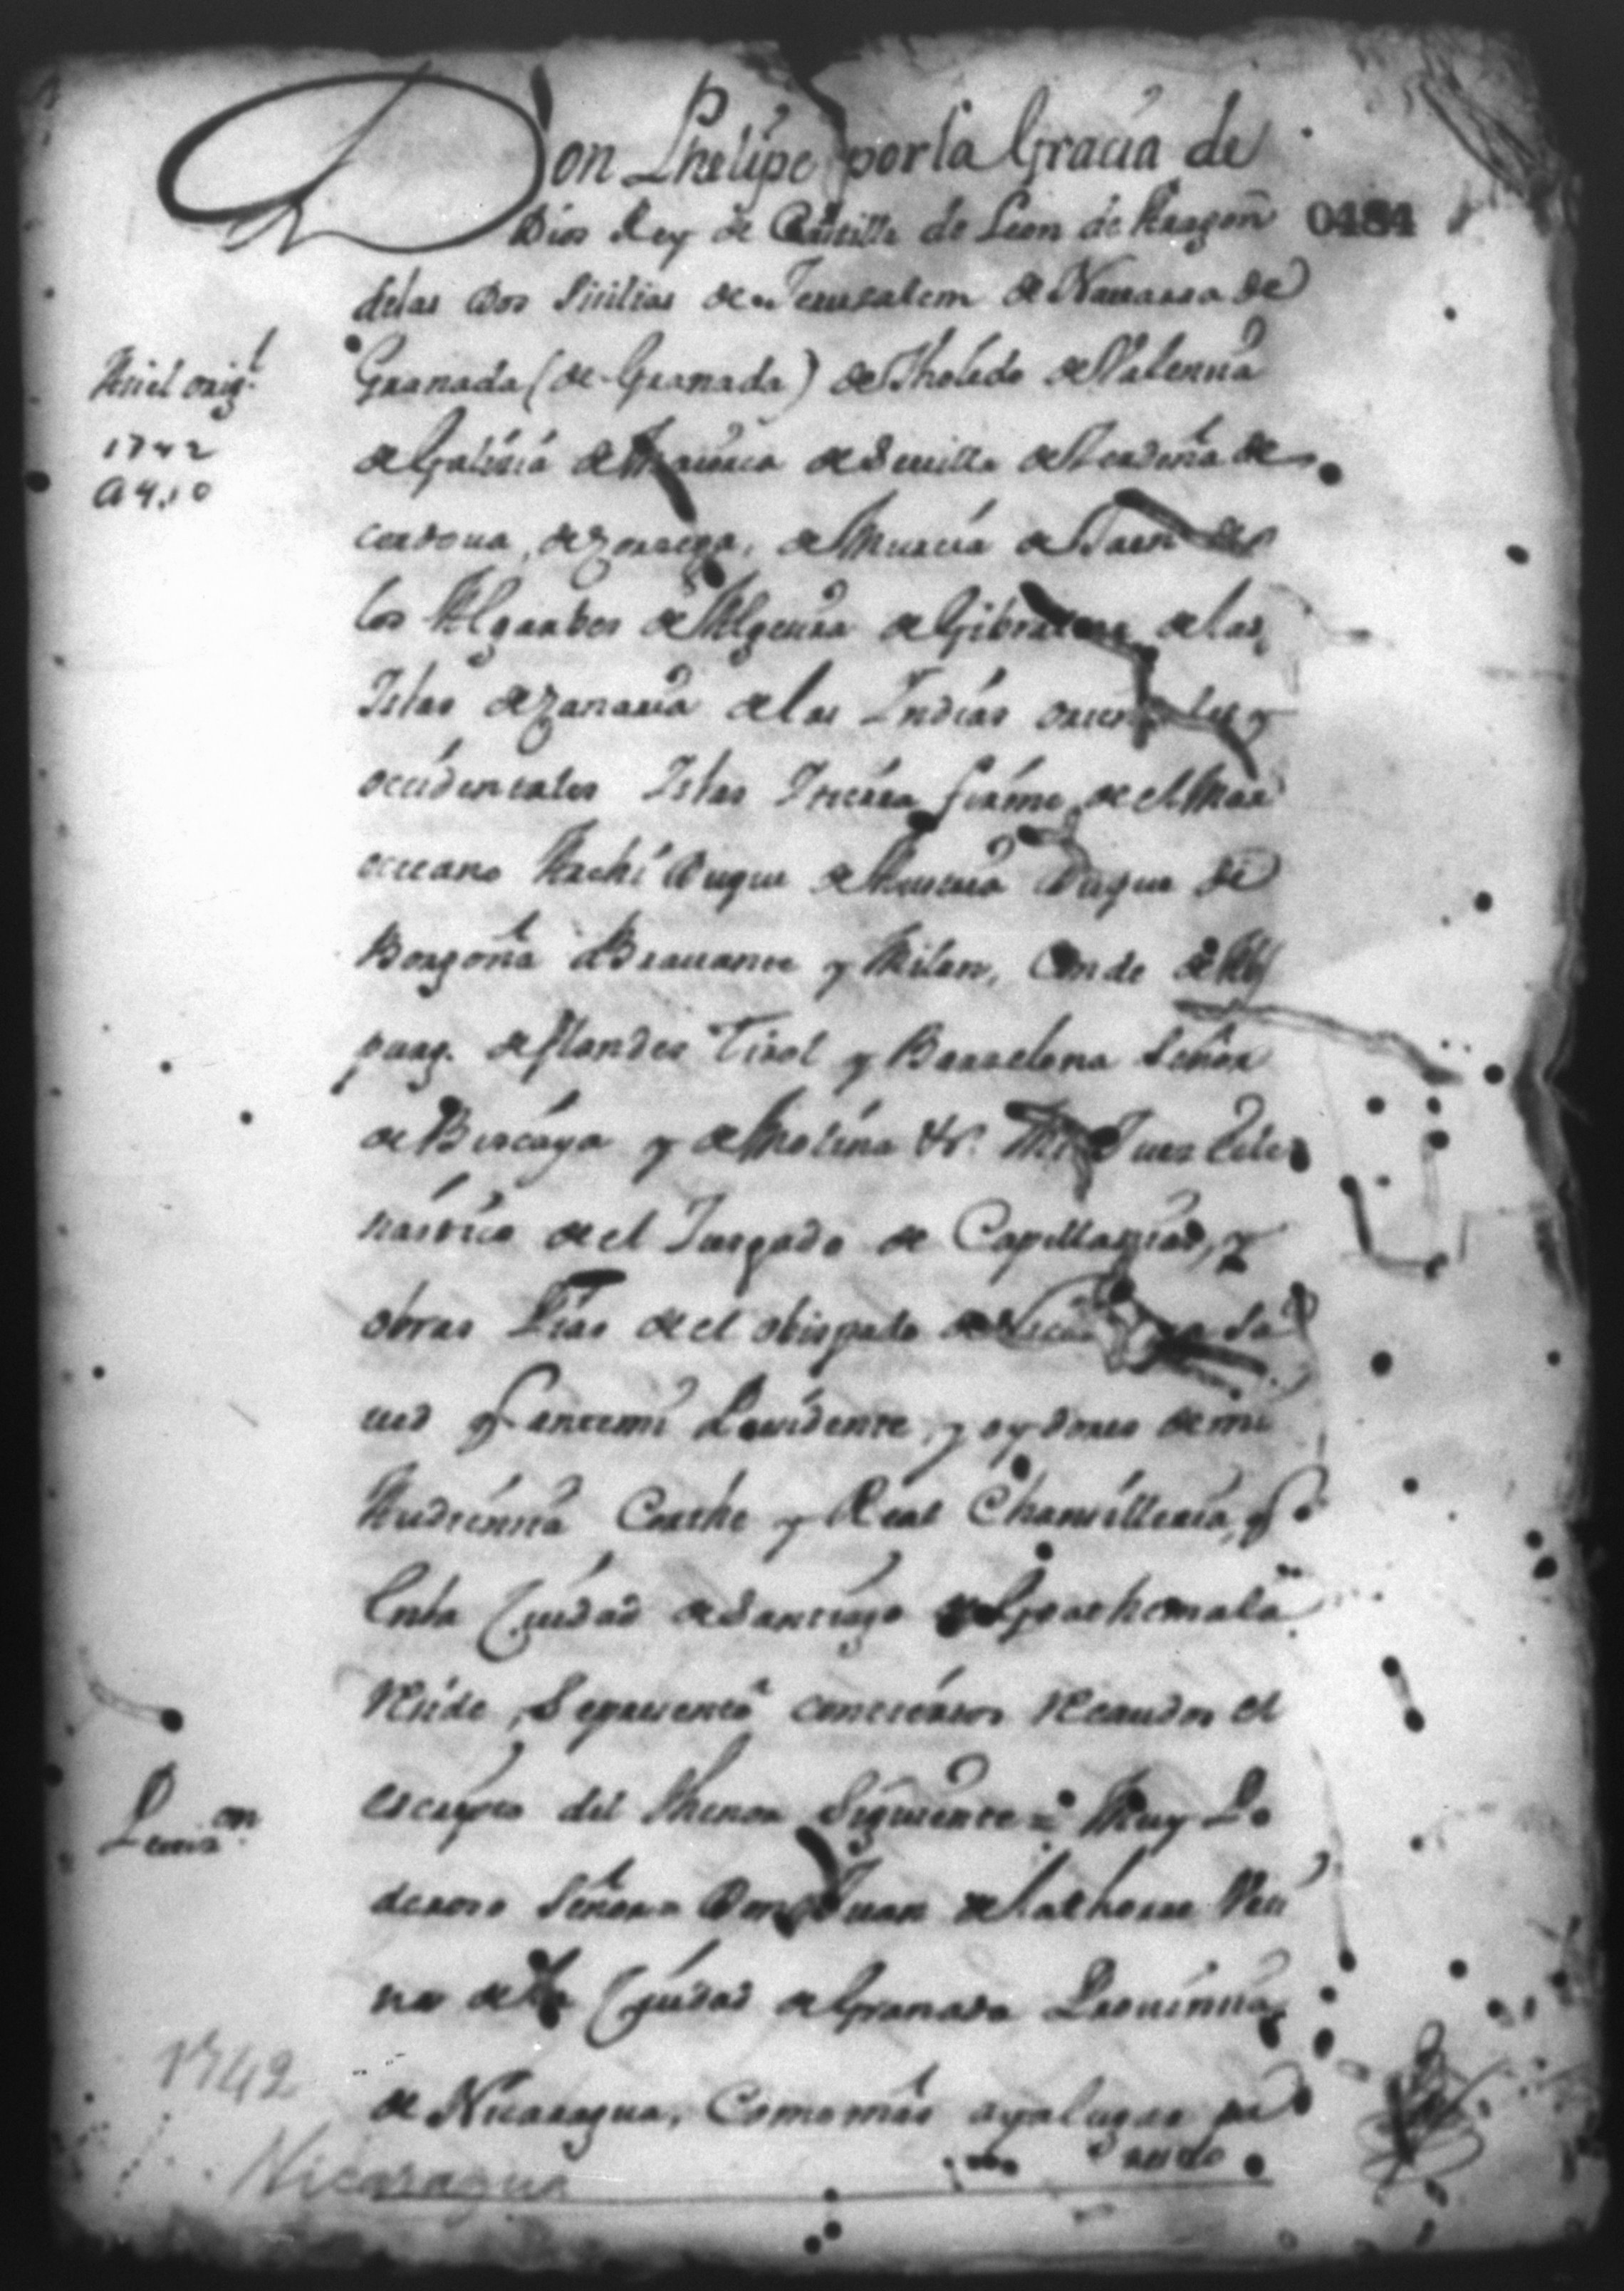 Don Phelipe por la Gracia de
Dios Rey de Castilla de Leon de Aragon
0484
delas dos Sicilias de Jerusalem de Nauarra de
Granada (de Granada) de Tholedo de Valencia
Asiel orig.l
1742
de Galicia de Mallorca de Seuilla de Serdeña de
cordoua, de Zorzega, de Murcia de Jaen de
los Algarbes de Algecira de Gibraltar de las
Islas de Zanaria de las Indias orientales y
occidentales Islas y tierra firme de el Mar
occeano Archi Duque de Austria Duque de
Borgoña Brauante y Milan, Conde de Abs
purg. de flandes Tirol y Barzelona Señor
de Biscaya y de Molina &c. Mi Juez Ecle
siastico de el Jusgado de Capellanias, y
obras Pias de el obispado de Nicaragua Sa
ued q.e ante mi Presidente, y oydores de mi
Audiencia Corthe y Real Chancilleria, q.e
en la Ciudad de Santiago de Goathemala
Reside, Se presentó con ciertos Recaudos el
escripto del thenor Siguiente = Muy Po
Peticz.on
deroso Señor = Don Juan de la thorre Veci
no de la Ciudad de Granada Prouincia
de Nicaragua, Como mas aya lugar pa
1742
Nicaragua